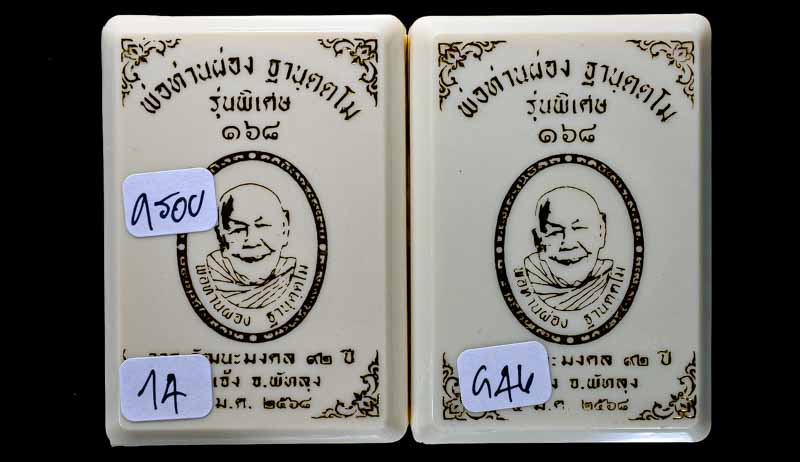 พ่อท่านผ่อง ฐานุตตโม
รุ่นพิเศษ
๑๖๘
พ่อท่านผ่อง ฐานุตตโม
วัฒนะมงคล ๙๒ ปี
จ.พัทลุง
ม.ค. ๒๕๖๘
14
พ่อท่านผ่อง ฐานุตตโม
รุ่นพิเศษ
๑๖๘
พ่อท่านผ่อง ฐานุตตโม
มงคล ๙๒ ปี
จ.พัทลุง
ม.ค. ๒๕๖๘